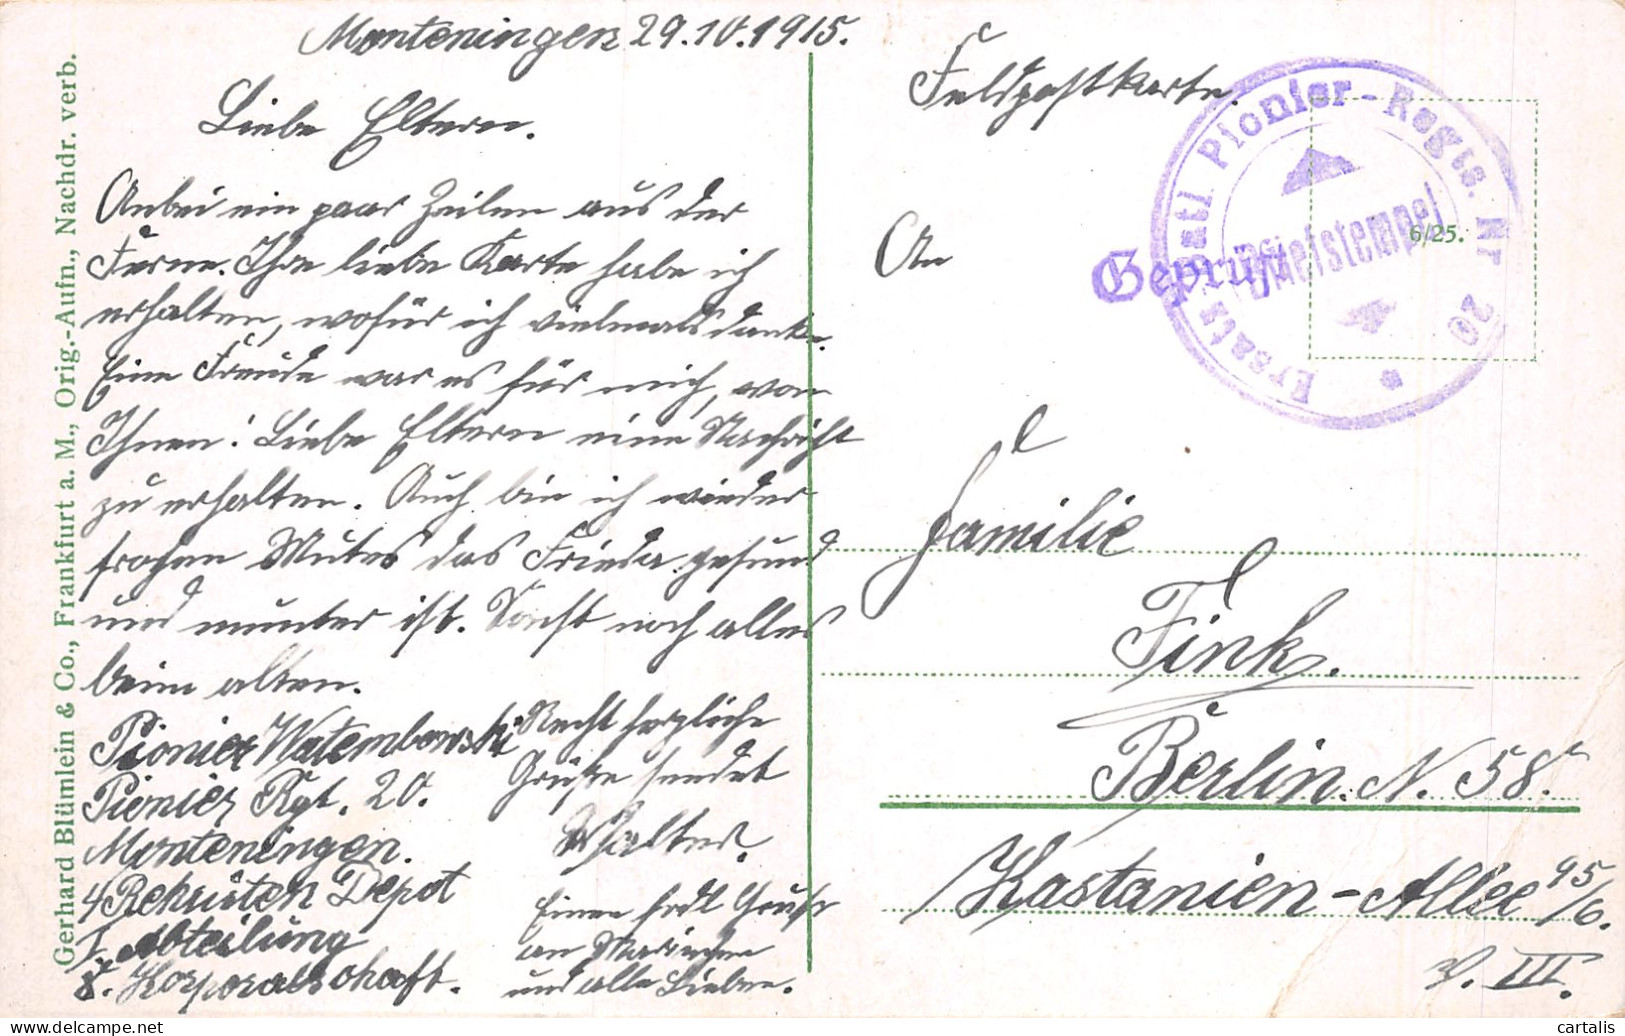 Gerhard Blümlein & Co., Frankfurt a. M., Orig.-Aufn., Nachdr. verb.
Monteningen 29.10.1915.
Liebe Eltern.
Anbei ein paar Zeilen aus der
Ferne. Ihre liebe Karte habe ich
erhalten, wofür ich vielmals danke.
Eine Freude war es für mich, von
Ihnen! Liebe Eltern eine Nachricht
zu erhalten. Auch bin ich wieder
frohen Mutes das Frieda gesund
und munter ist. Sonst noch alles
beim alten.
Recht herzliche
Grüße sendet
Walter.
Einen hrzl Gruß
an
und alle Lieben.
Pionier
Pionier Rgt. 20.
Monteningen.
4 Rekruten Depot
I. Abteilung
8. Korporalschaft.
Feldpostkarte.
Ersatz Batl Pionier-Regts. Nr 20
Briefstempel
Geprüft
6/25.
An
Familie
Fink.
Berlin. N. 58.
Kastanien-Allee 95/6.
v. III.
cartalis
delcampe.net